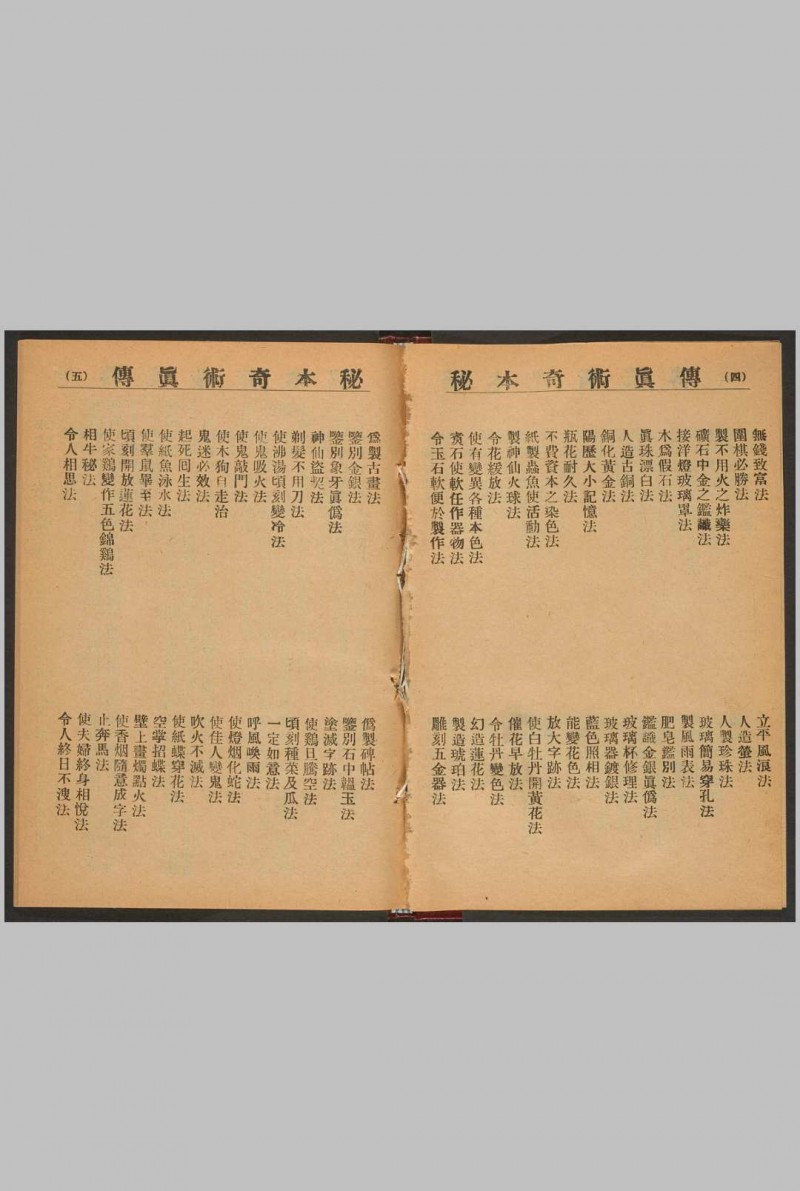 秘本奇術眞傳
（四）
無錢致富法
圍棋必勝法
製不用火之炸藥法
礦石中金之鑑識法
接洋燈玻璃罩法
木爲假石法
眞珠漂白法
人造古銅法
銅化黃金法
陽歷大小記憶法
瓶花耐久法
不費資本之染色法
紙製蟲魚使活動法
製神仙火球法
令花緩放法
使有變異各種本色法
寶石使軟任作器物法
令玉石軟便於製作法
立平風浪法
人造螢法
人製珍珠法
玻璃簡易穿孔法
製風雨表法
肥皂鑑別法
鑑識金銀眞僞法
玻璃杯修理法
玻璃器鍍銀法
藍色照相法
能變花色法
放大字跡法
使白牡丹開黃花法
催花早放法
令牡丹變色法
幻造蓮花法
製造琥珀法
雕刻五金器法
秘本奇術眞傳
（五）
僞製古畫法
鑒別金銀法
鑒別象牙眞僞法
神仙盜契法
剃髮不用刀法
使沸湯頃刻變冷法
使鬼吸火法
使鬼敲門法
使木狗自走治
鬼迷必效法
起死囘生法
使紙魚泳水法
使羣鼠畢至法
頃刻開放蓮花法
使家鷄變作五色錦鷄法
相牛秘法
令人相思法
僞製碑帖法
鑒別石中韞玉法
塗滅字跡法
使鷄旦騰空法
頃刻種菜及瓜法
一定如意法
呼風喚雨法
使燈烟化蛇法
使佳人變鬼法
吹火不滅法
使紙蝶穿花法
空掌招蝶法
壁上畫燭點火法
使香烟隨意成字法
止奔馬法
使夫婦終身相悅法
令人終日不溲法